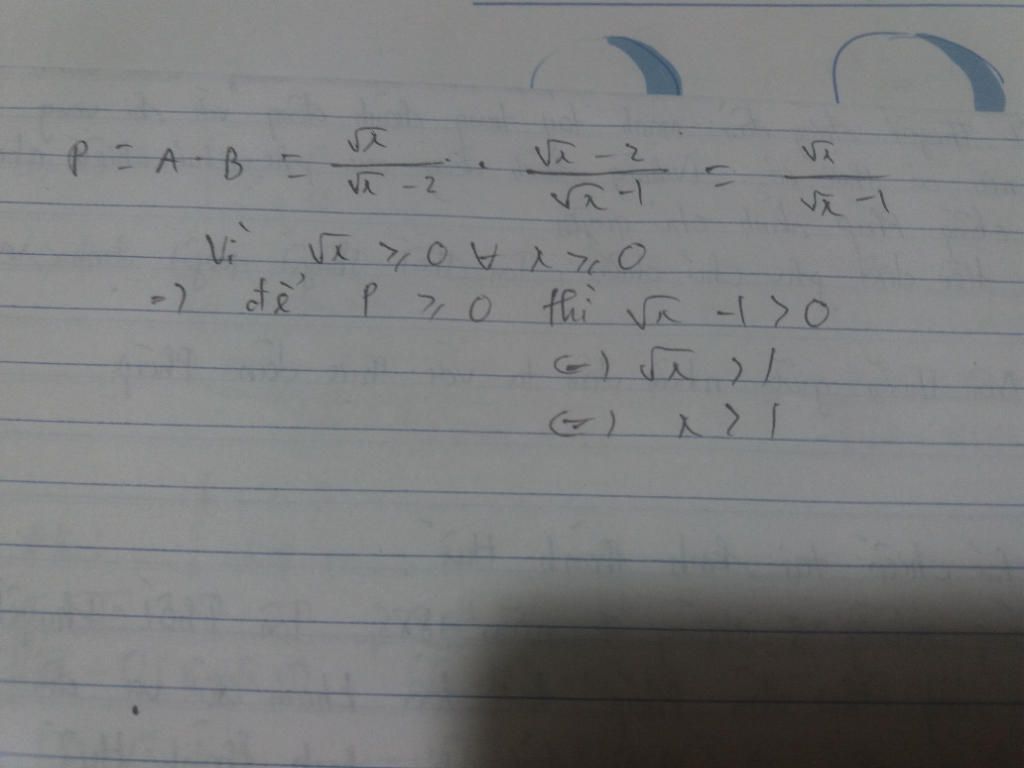 P = A · B = √x / (√x - 2) · (√x - 2) / (√x - 1) = √x / (√x - 1)
Vì √x ≥ 0 ∀ x ≥ 0
=> để P ≥ 0 thì √x - 1 > 0
<=> √x > 1
<=> x > 1